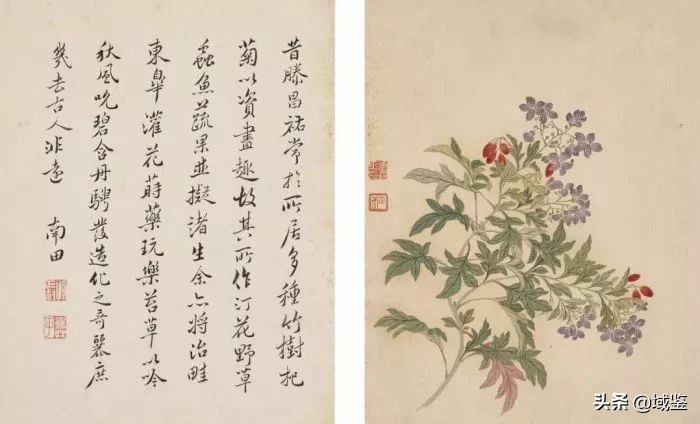 昔滕昌祐常於所居多種竹樹杞
菊以資畫趣故其所作汀花野草
蟲魚蔬果並擬諸生余亦將治畦
東皋灌花蒔藥玩樂苔草以吟
秋風吮碧含丹騁發造化之奇麗庶
幾去古人非遠 南田
头条 @域鉴